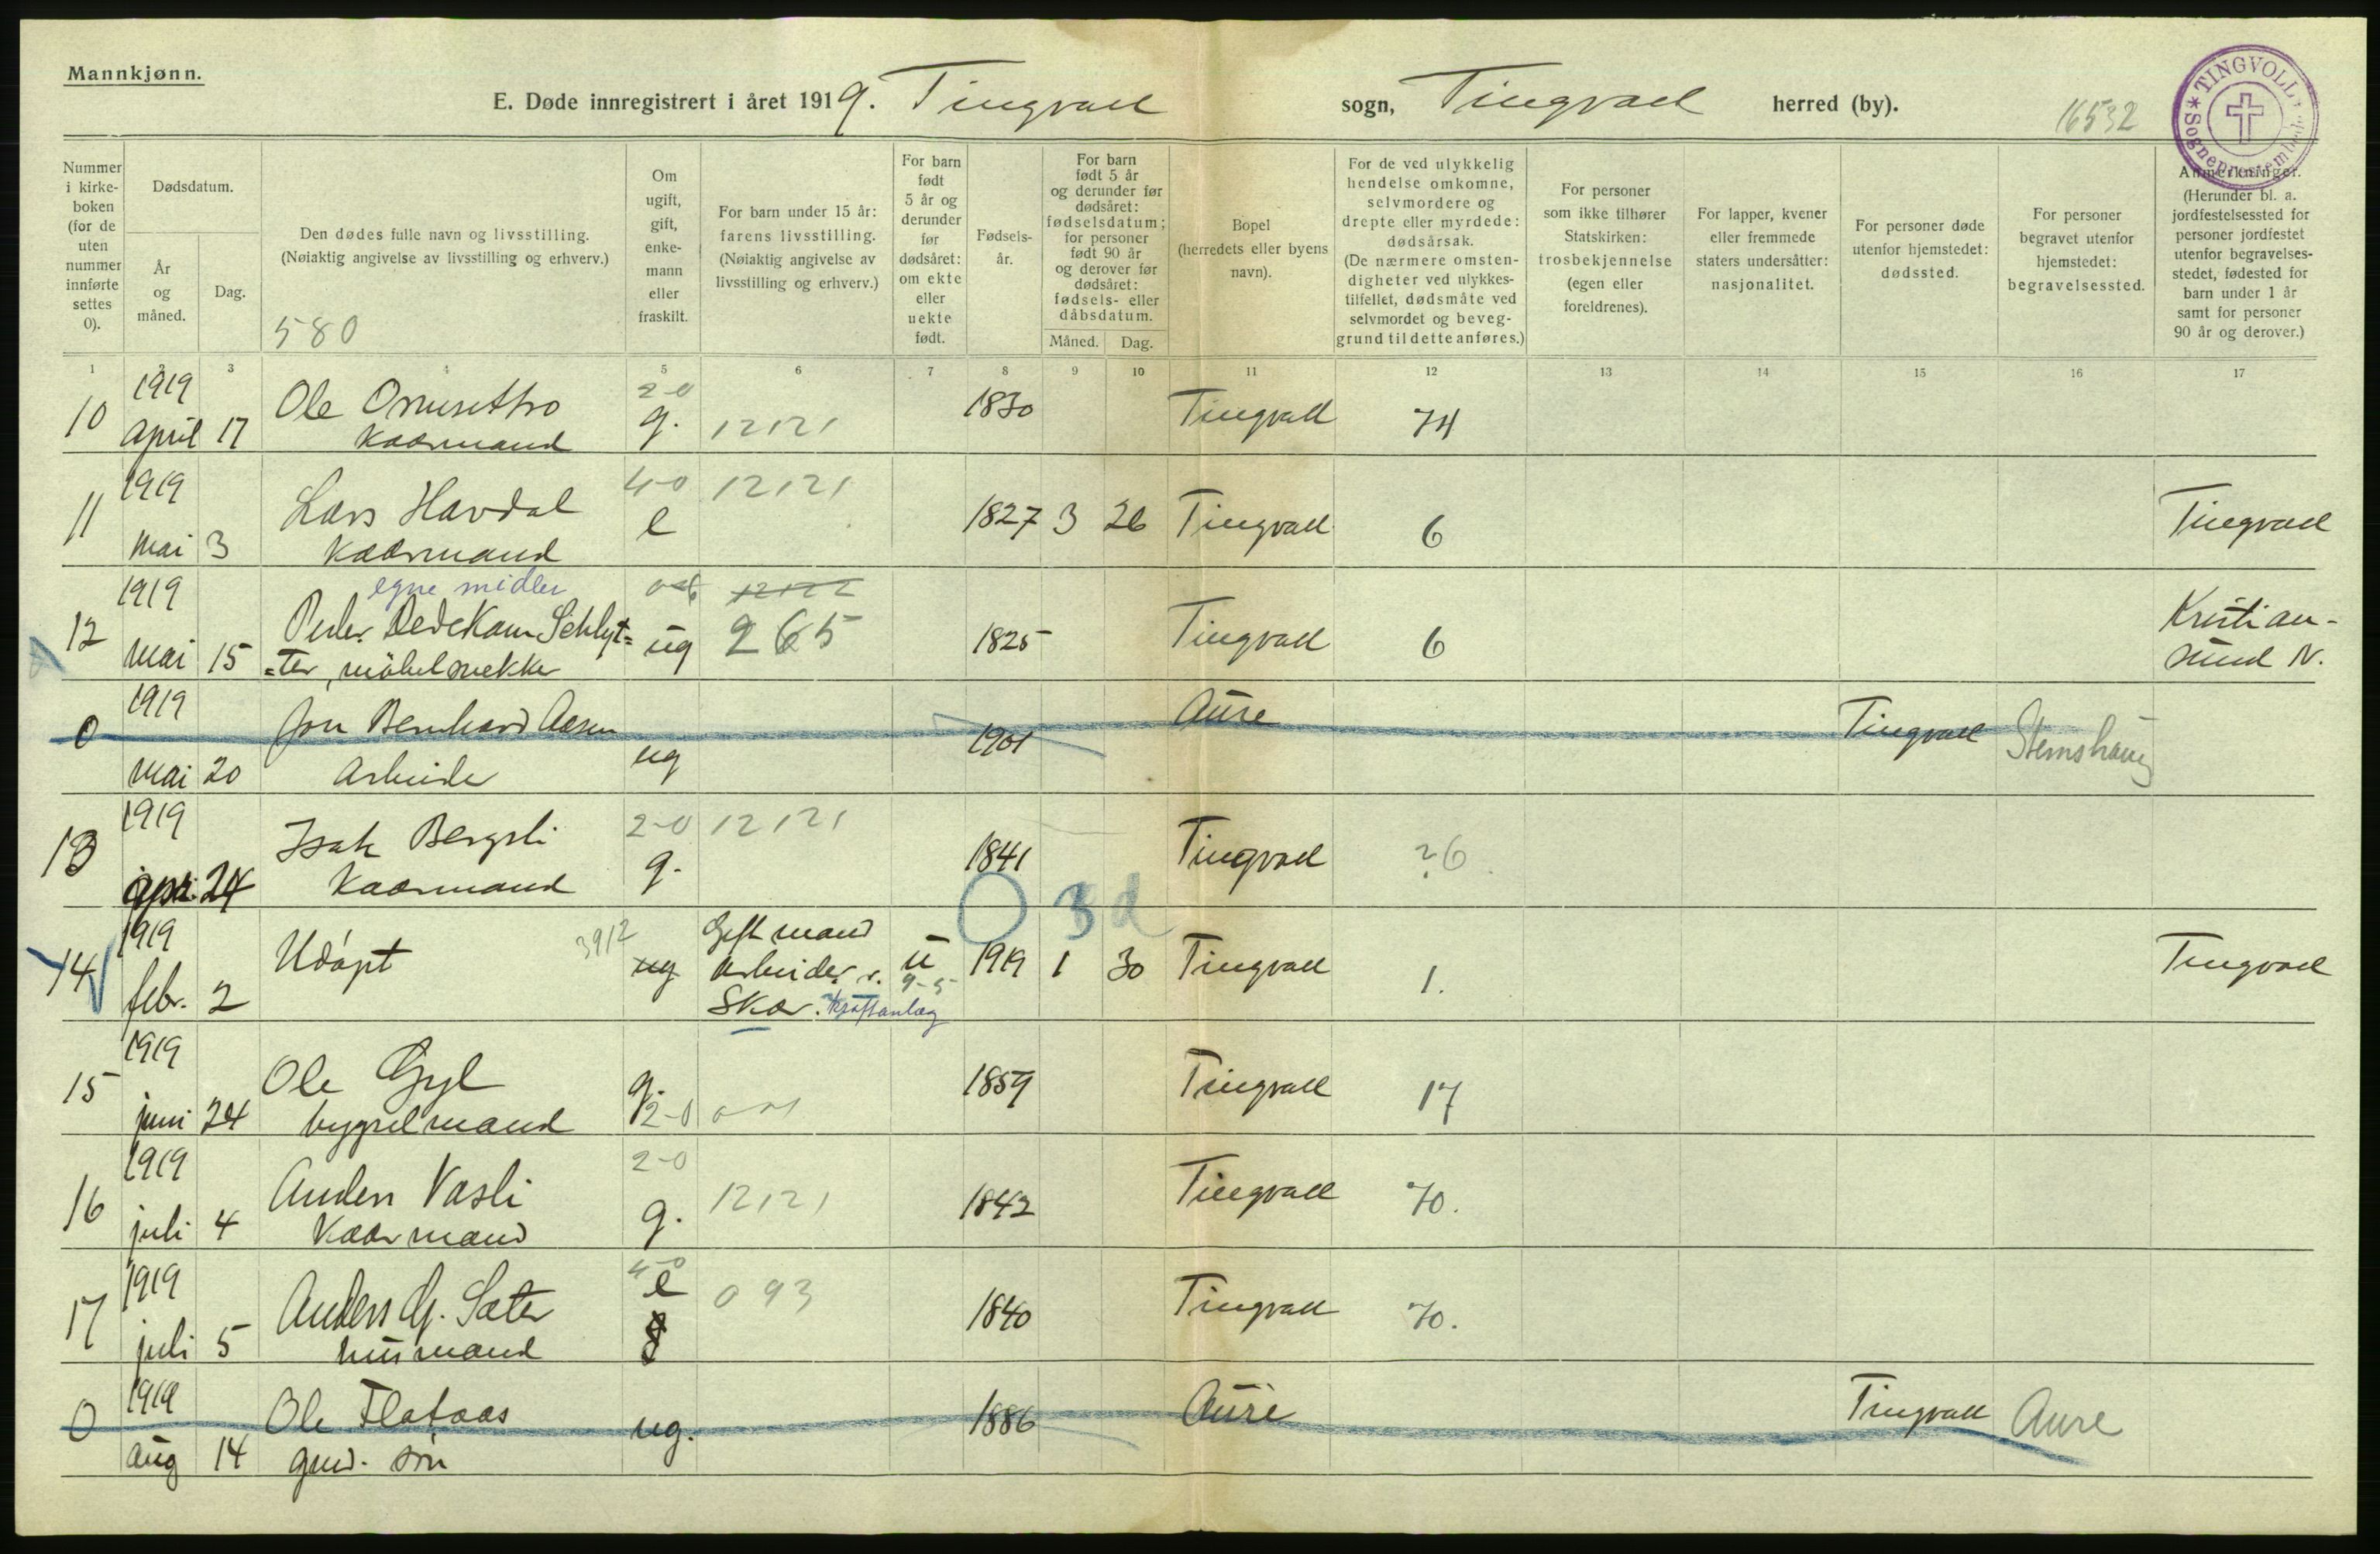 Mannkjønn.
E. Døde innregistrert i året 1919. Tingvoll sogn, Tingvoll herred (by).
16532
* TINGVOLL * Sogneprestembede
Nummer i kirke-boken (for de uten nummer innførte settes 0).
Dødsdatum.
År og måned.
Dag.
Den dødes fulle navn og livsstilling.
(Nøiaktig angivelse av livsstilling og erhverv.)
580
Om ugift, gift, enke-mann eller fraskilt.
For barn under 15 år: farens livsstilling. (Nøiaktig angivelse av livsstilling og erhverv.)
For barn født 5 år og derunder før dødsåret: om ekte eller uekte født.
Fødsels-år.
For barn født 5 år og derunder før dødsåret: fødselsdatum; for personer født 90 år og derover før dødsåret: fødsels- eller dåbsdatum.
Måned. Dag.
Bopel (herredets eller byens navn).
For de ved ulykkelig hendelse omkomne, selvmordere og drepte eller myrdede: dødsårsak. (De nærmere omsten-digheter ved ulykkes-tilfellet, dødsmåte ved selvmordet og beveg-grund til dette anføres.)
For personer som ikke tilhører Statskirken: trosbekjennelse (egen eller foreldrenes).
For lapper, kvener eller fremmede staters undersåtter: nasjonalitet.
For personer døde utenfor hjemstedet: dødssted.
For personer begravet utenfor hjemstedet: begravelsessted.
Anmerkninger. (Herunder bl. a. jordfestelsessted for personer jordfestet utenfor begravelses-stedet, fødested for barn under 1 år samt for personer 90 år og derover.)
1 2 3 4 5 6 7 8 9 10 11 12 13 14 15 16 17
1919 2-0
10 april 17 Ole g. 12121 1830 Tingvoll 74
Kaarmand
1919 4-0 12121
11 mai 3 Lars Havdal e 1827 3 26 Tingvoll 6 Tingvoll
Kaarmand
1919 egne midler 12122
12 mai 15 Peder Dedekam Schlyt= ug 265 1825 Tingvoll 6 Kristian-
=ter, möbelsnekker sund N.
1919
0 mai 20 Jon Bernhard Aasen ug 1901 Aure Tingvoll Stemshaug
Arbeider
1919 2-0 12121
13 24 Isak Bergsli g. 1841 Tingvoll ?6
Kaarmand
0 3 d
1919 3912 Gift mand
14 febr. 2 Udøpt ug Arbeider v. u 1919 1 30 Tingvoll 1. Tingvoll
Skar kraftanlæg 9-5
1919
15 juni 24 Ole Gyl g. 1859 Tingvoll 17
bygselmand 2-0
1919 2-0
16 juli 4 Anders Vasli g. 12121 1842 Tingvoll 70.
Kaarmand
1919 4-0
17 juli 5 Anders G. Sæter e 093 1840 Tingvoll 70.
husmand
1919
0 aug 14 Ole Flataas ug. 1886 Aure Tingvoll Aure
gmd. søn